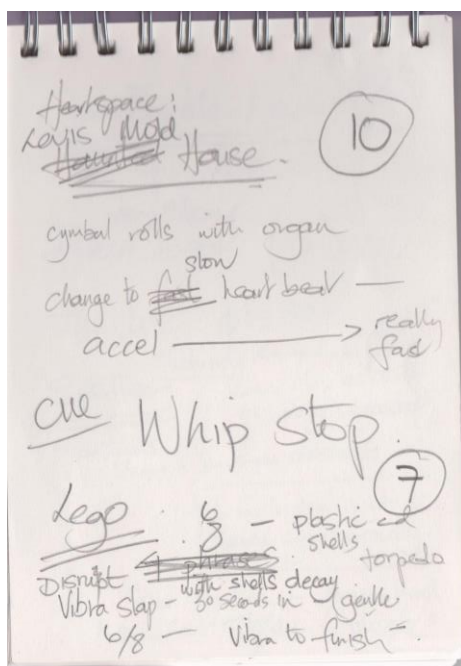 Heartspace:
Mold
10
Haunted House.
cymbal rolls with organ
slow
change to fast heart beat —
accel ⟶ really
fast
cue Whip Stop.
7
Lego 6
8 — plastic
shells
torpedo
4 phrases
Disrupt with shells decay
Vibra Slap - 30 seconds in - gentle
6/8 — Vibra to finish -